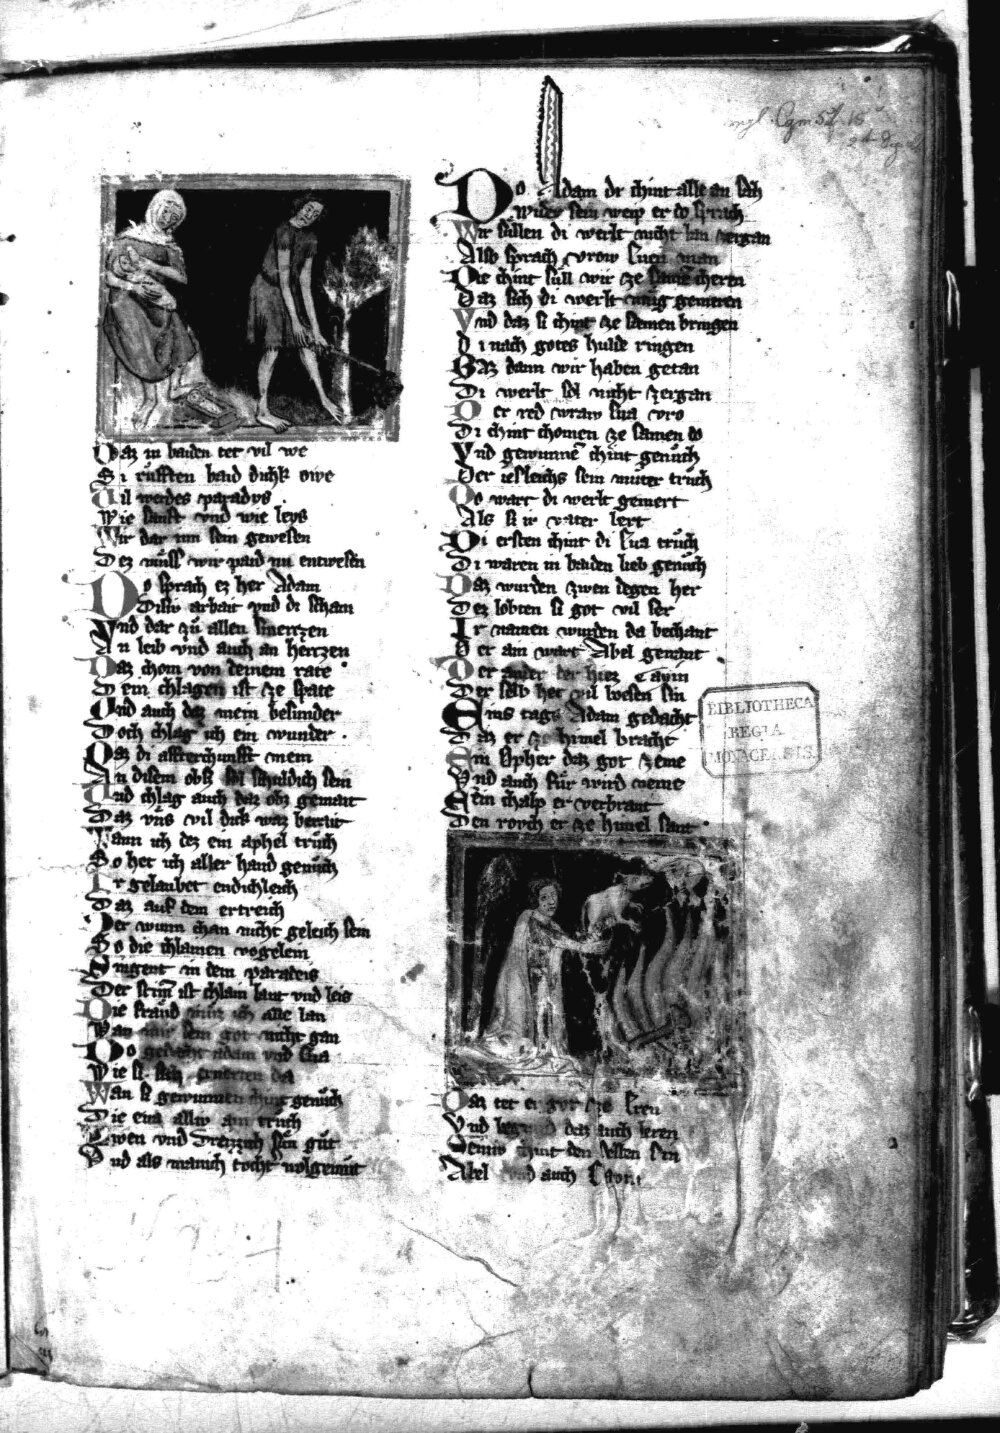 Daz in baiden tet vil we
Si růfften baid dikch owe
Vil werdes paradys
Wie sanft vnd wie leys
Wir dar inn sein gewesen
Dez můss wir paid nu entwesen
Do sprach ez her Adam
Disiv arbait vnd di scham
Vnd dar zů allen smerczen
An leib vnd auch an herczen
Daz chom von deinem rate
Dein chlagen ist ze spate
Vnd auch daz mein besunder
Doch chlag ich ein wunder
Daz di affterchunft mein
An disem obs sol schuldich sein
Vnd chlag auch daz obz gemait
Daz vns vil dick waz berait
Wann ich dez ein aphel trůch
So het ich aller hand genůch
Ir gelaubet endichleich
Daz auf dem ertreich
Der wunn chan nicht geleich sein
So die chlainen vogelein
Singent in dem paradeis
Der stim ist chlain laut vnd leis
Die fraud můz ich alle lan
Wan mir sein got nicht gan
Do gedaht adam vnd Eua
Wie si sich ernerten da
Wan si gewunnen chint genůch
Die eua alliv an trůch
Zwen vnd dreizzich sun gůt
Vnd als manich tocht wolgemůt
Do Adam dr chint alle an sach
Wider sein weip er do sprach
Wir sullen di werlt nicht lan zergan
Also sprach vrow Euen man
Die chint sull wir ze samē chern
Daz sich di werlt můg gemeren
Vnd daz si chint ze samen bringen
Di nach gotes hulde ringen
Baz dann wir haben getan
Di werlt sol nicht zergan
Der red wraw Eua vro
Di chint chomen ze samen do
Vnd gewunnē chint genůch
Der iesleichs sein můter trůch
Do wart di werlt gemert
Als si ir vater lert
Di ersten chint di Eua trůch
Di waren in baiden lieb genůch
Daz wurden zwen degen her
Dez lobten si got vil ser
Ir namen wurden da bechant
Der ain wart Abel genant
Der ander der hiez Cayin
Der selb het vil wesen sin
Ains tags Adam gedacht
Daz er ze himel bracht
Ein opher daz got zeme
Vnd auch fůr wird neme
Ein chalp er verbrant
Den rovch er ze himel sant
Daz tet er got ze Eren
Vnd begund daz auch leren
Seiniv chint den selben sin
Abel vnd auch Cayin
BIBLIOTHECA
REGIA
MONACENSIS